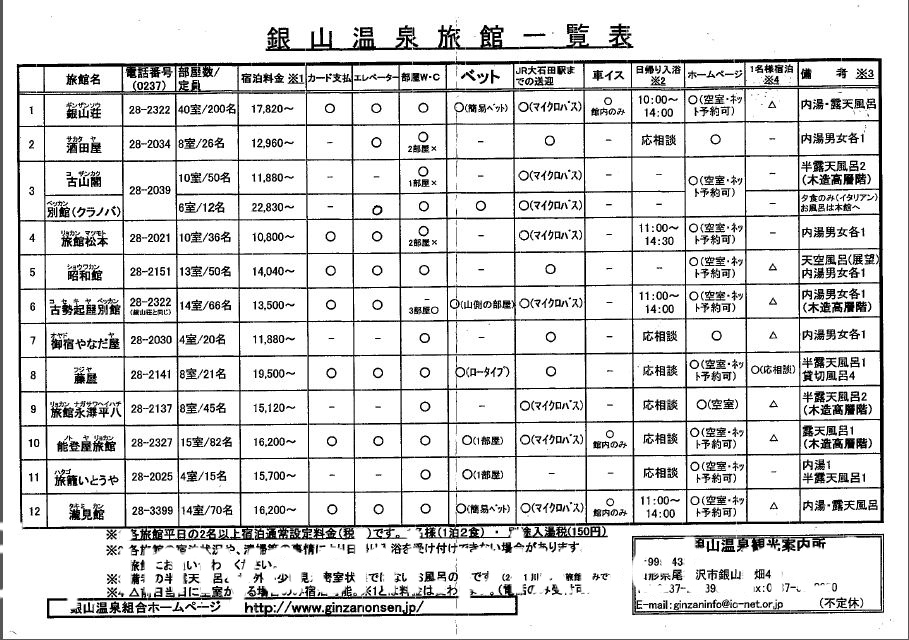 銀山温泉旅館一覧表
旅館名 電話番号(0237) 部屋数/定員 宿泊料金 ※1 カード支払 エレベーター 部屋W・C ベット JR大石田駅までの送迎 車イス 日帰り入浴 ※2 ホームページ 1名様宿泊 ※4 備考 ※3
1 ギンザンソウ 銀山荘 28-2322 40室/200名 17,820～ ○ ○ ○ ○(簡易ベット) ○(マイクロバス) ○館内のみ 10:00～14:00 ○(空室・ネット予約可) △ 内湯・露天風呂
2 サカタ ヤ 酒田屋 28-2034 8室/26名 12,960～ - ○ ○2部屋× - ○ - 応相談 ○ - 内湯男女各1
3 コ ザンカク 古山閣 28-2039 10室/50名 11,880～ - - ○1部屋× - ○(マイクロバス) - - ○(空室・ネット予約可) - 半露天風呂2(木造高層階)
ベッカン 別館(クラノバ) 6室/12名 22,830～ - ○ ○ ○ ○(マイクロバス) - - - 夕食のみ(イタリアン)お風呂は本館へ
4 リョカン マツモト 旅館松本 28-2021 10室/36名 10,800～ ○ ○ ○2部屋× - ○(マイクロバス) - 11:00～14:30 ○(空室・ネット予約可) - 内湯男女各1
5 ショウワカン 昭和館 28-2151 13室/50名 14,040～ ○ ○ ○ - ○ - - ○(空室・ネット予約可) △ 天空風呂(展望)内湯男女各1
6 コ セ キ ヤ ベッカン 古勢起屋別館 28-2322(銀山荘と同じ) 14室/66名 13,500～ ○ ○ -3部屋○ ○(山側の部屋) ○(マイクロバス) - 11:00～14:00 ○(空室・ネット予約可) △ 内湯男女各1(木造高層階)
7 オヤド ヤ 御宿やなだ屋 28-2030 4室/20名 11,880～ - - ○ - ○ - 応相談 ○ △ 内湯男女各1
8 フジヤ 藤屋 28-2141 8室/21名 19,500～ ○ ○ ○ ○(ロータイプ) ○ - 応相談 ○(空室・ネット予約可) ○(応相談) 半露天風呂1 貸切風呂4
9 リョカン ナガサワヘイハチ 旅館永澤平八 28-2137 8室/45名 15,120～ - - ○ - ○(マイクロバス) - 応相談 ○(空室) △ 半露天風呂2(木造高層階)
10 ノト ヤ リョカン 能登屋旅館 28-2327 15室/82名 16,200～ ○ ○ ○ ○(1部屋) ○(マイクロバス) ○館内のみ 応相談 ○(空室・ネット予約可) △ 露天風呂1(木造高層階)
11 ハタゴ 旅籠いとうや 28-2025 4室/15名 15,700～ - - ○ ○(1部屋) - - 応相談 ○(空室・ネット予約可) - 内湯1 半露天風呂1
12 タキミ カン 瀧見館 28-3399 14室/70名 16,200～ ○ ○ ○ ○(簡易ベット) ○(マイクロバス) ○館内のみ 11:00～14:00 ○(空室・ネット予約可) △ 内湯・露天風呂
各旅館平日の2名以上宿泊通常設定料金(税 )です。 様(1泊2食)・ 入湯税(150円)
入浴を受け付けできない場合があります。
銀山温泉組合ホームページ http://www.ginzanonsen.jp/
銀山温泉観光案内所
沢市銀山 畑4
E-mail:ginzaninfo@ic-net.or.jp (不定休)